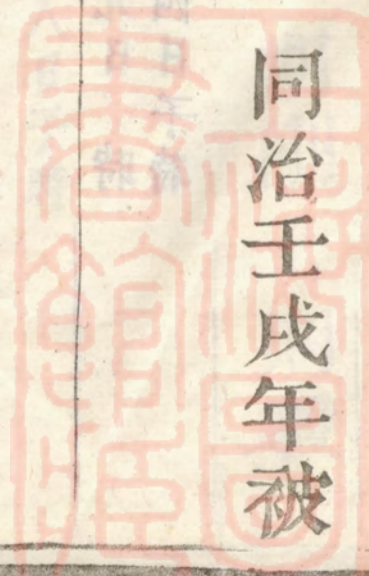 同治壬戌年被